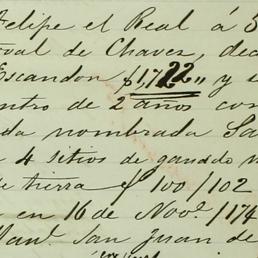 Felipe el Real á 3
oval de Chaves, dec
Escandon $1,722,, y e
ntro de 2 años con
da nombrada Sa
4 sitios de ganado m
e tierra $100/102
en 16 de Nov.º/174
Man.l San Juan de